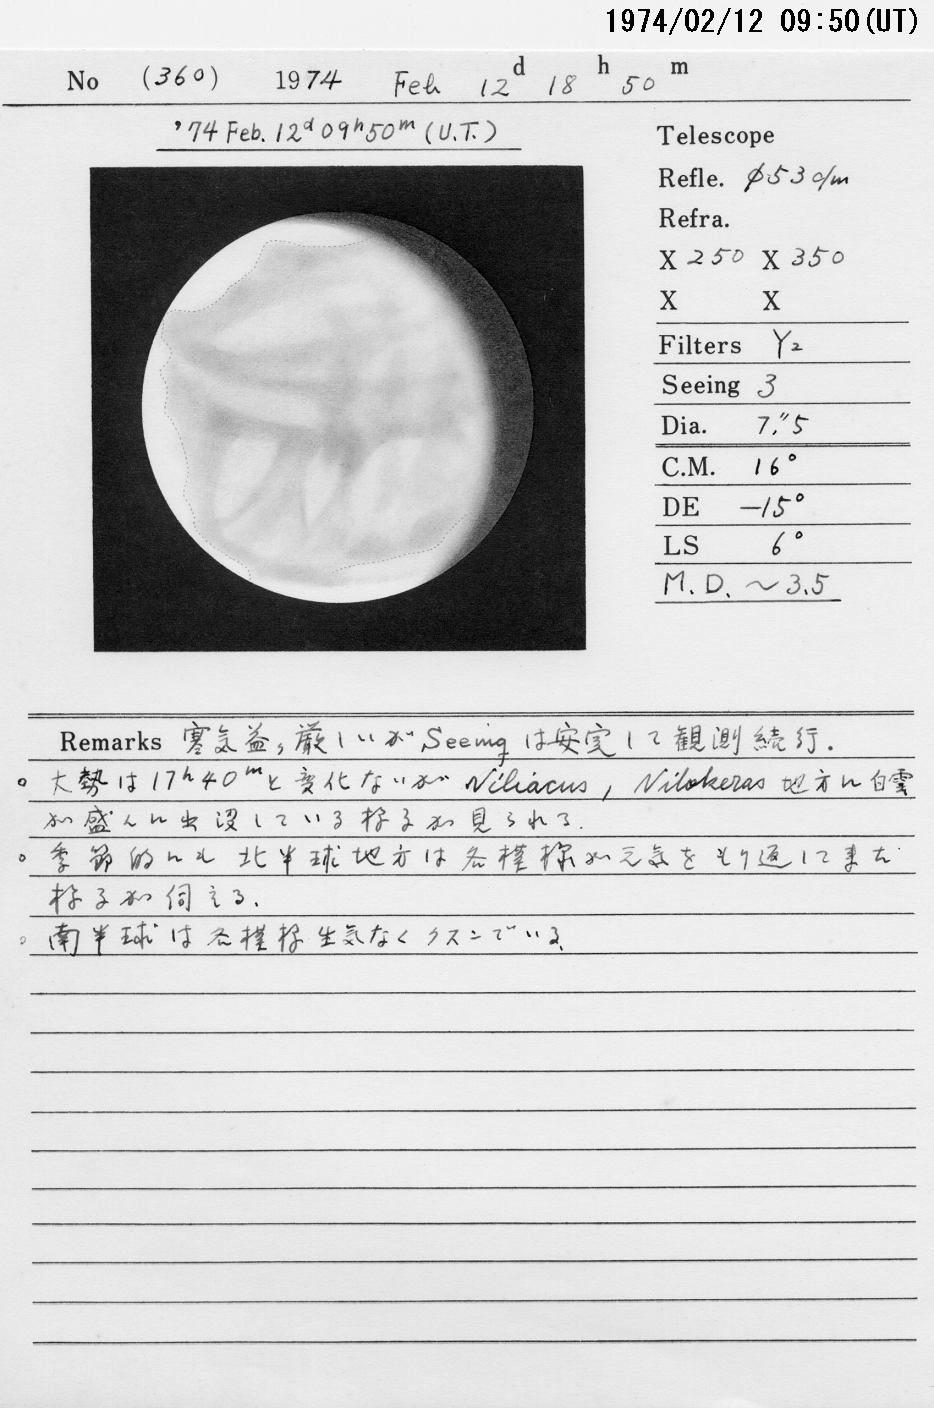 1974/02/12 09:50(UT)
No (360) 1974 Feb 12d 18h 50m
'74 Feb. 12d 09h50m (U.T.)
Telescope
Refle. φ530m/m
Refra.
X 250 X 350
X X
Filters Y2
Seeing 3
Dia. 7."5
C.M. 16°
DE -15°
LS 6°
M.D. ~3.5
Remarks 寒気益々厳しいがSeeingは安定して観測続行.
○ 大勢は17h40mと変化ないが Niliacus, Nilokeras地方に白雲
が盛んに出没している様子が見られる.
○ 季節的にも北半球地方は各模様が元気をもり返してきた
様子が伺える.
○ 南半球は各模様生気なくクスンでいる.